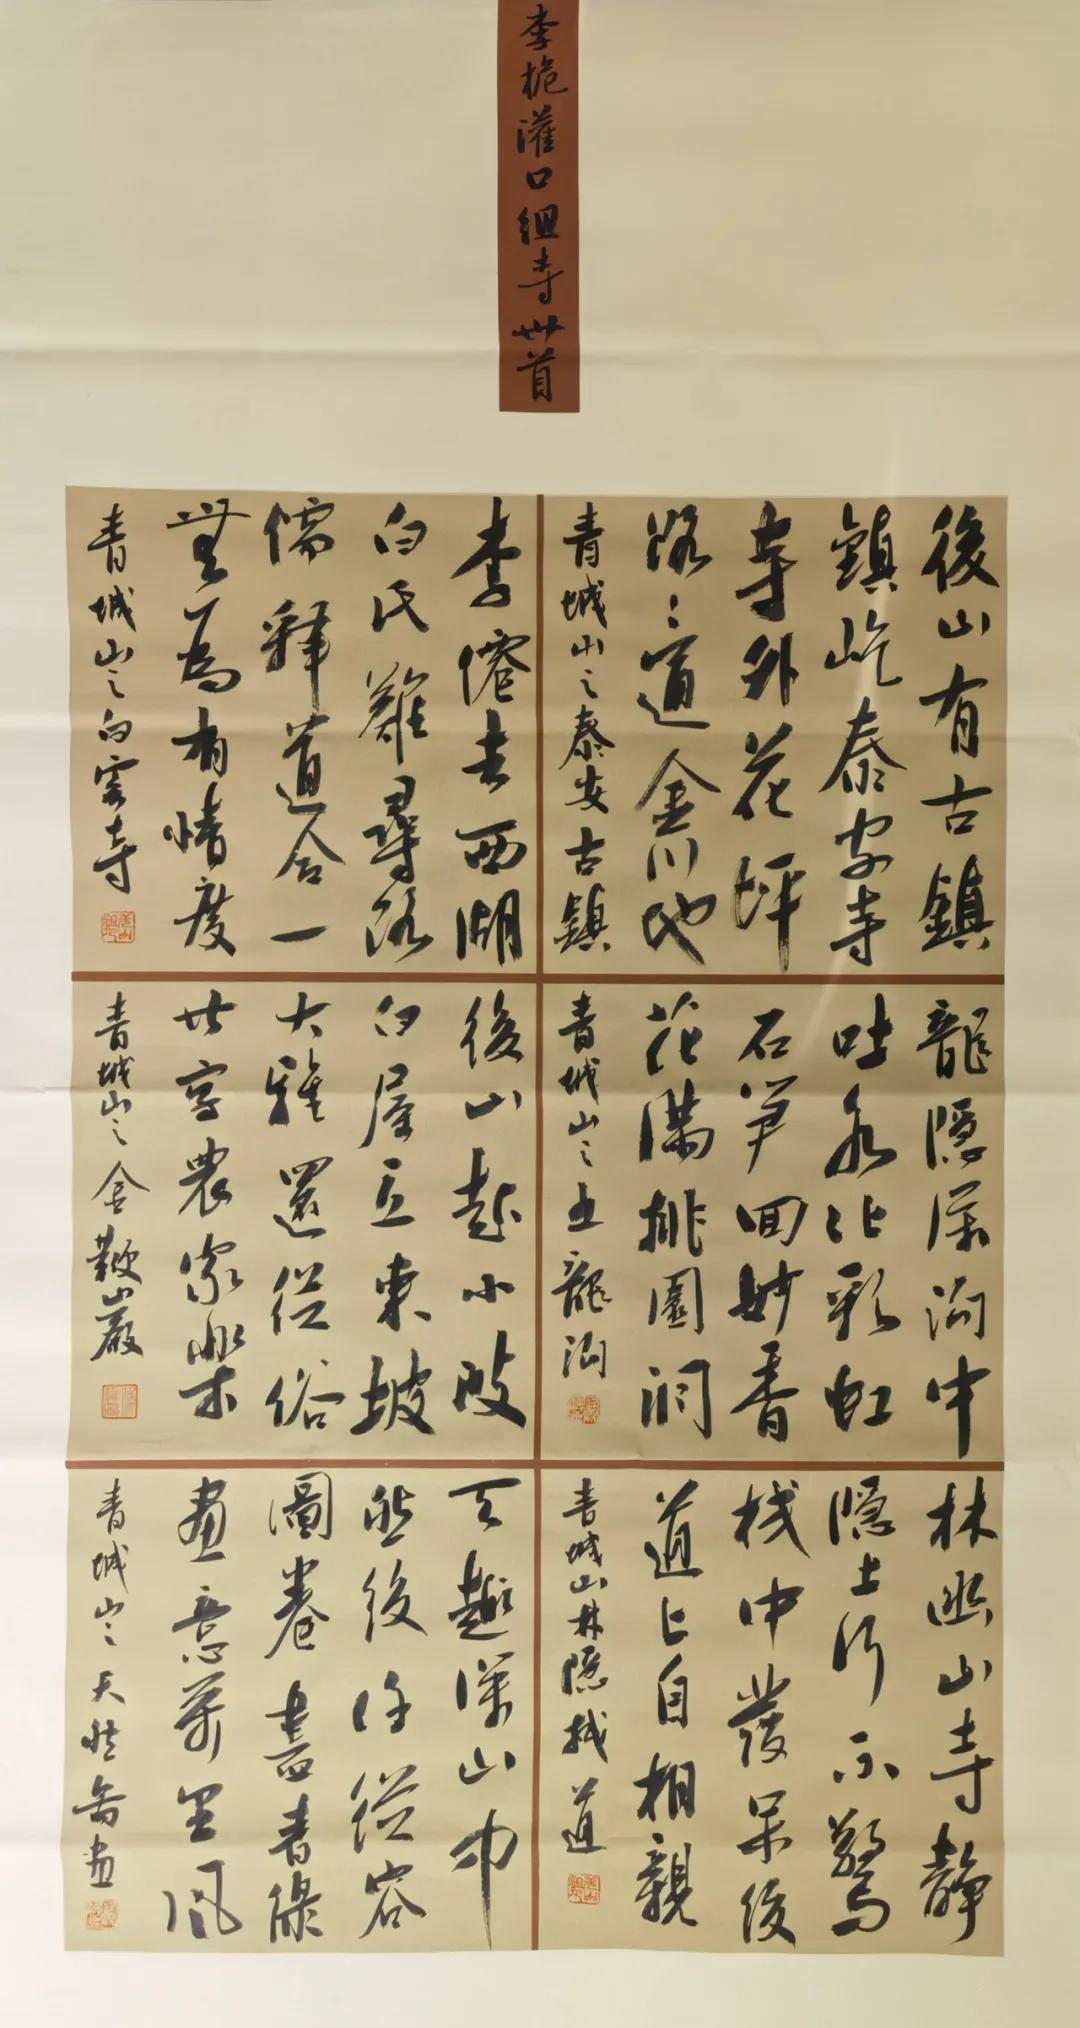 李桅灌口组诗卅首
後山有古鎮
鎮屹泰安寺
寺外花坪
路々道金川地
青城山之泰安古鎮
龍隱深洞中
吐水化彩虹
石笋回妙香
花满桃園洞
青城山之五龍洞
林幽山寺静
隱士行不驚
栈中發呆後
道上自相親
青城山林隱栈道
李僊去西湖
白氏難尋路
儒釋道合一
無為有情度
青城山之白雲寺
後山起小陂
白屋立東坡
大雅還從俗
共享農家樂
青城山之金鞭巖
天趣深山中
然後任從容
圖卷畫青緑
畫意萬里風
青城山之天然畵